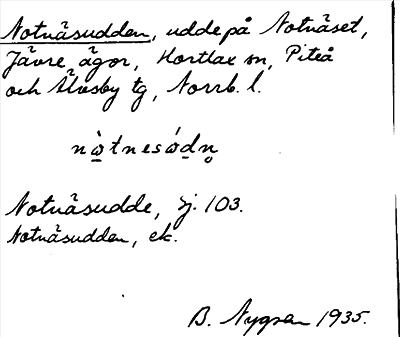 Notnäsudden, udde på Notnäset,
Jävre ägor, Hortlax sn, Piteå
och Älvsby tg, Norrb. l.
nὼtnesώdn̥
Notnäsudde, Sj. 103.
Notnäsudden, ek.
B. Nygren 1935.